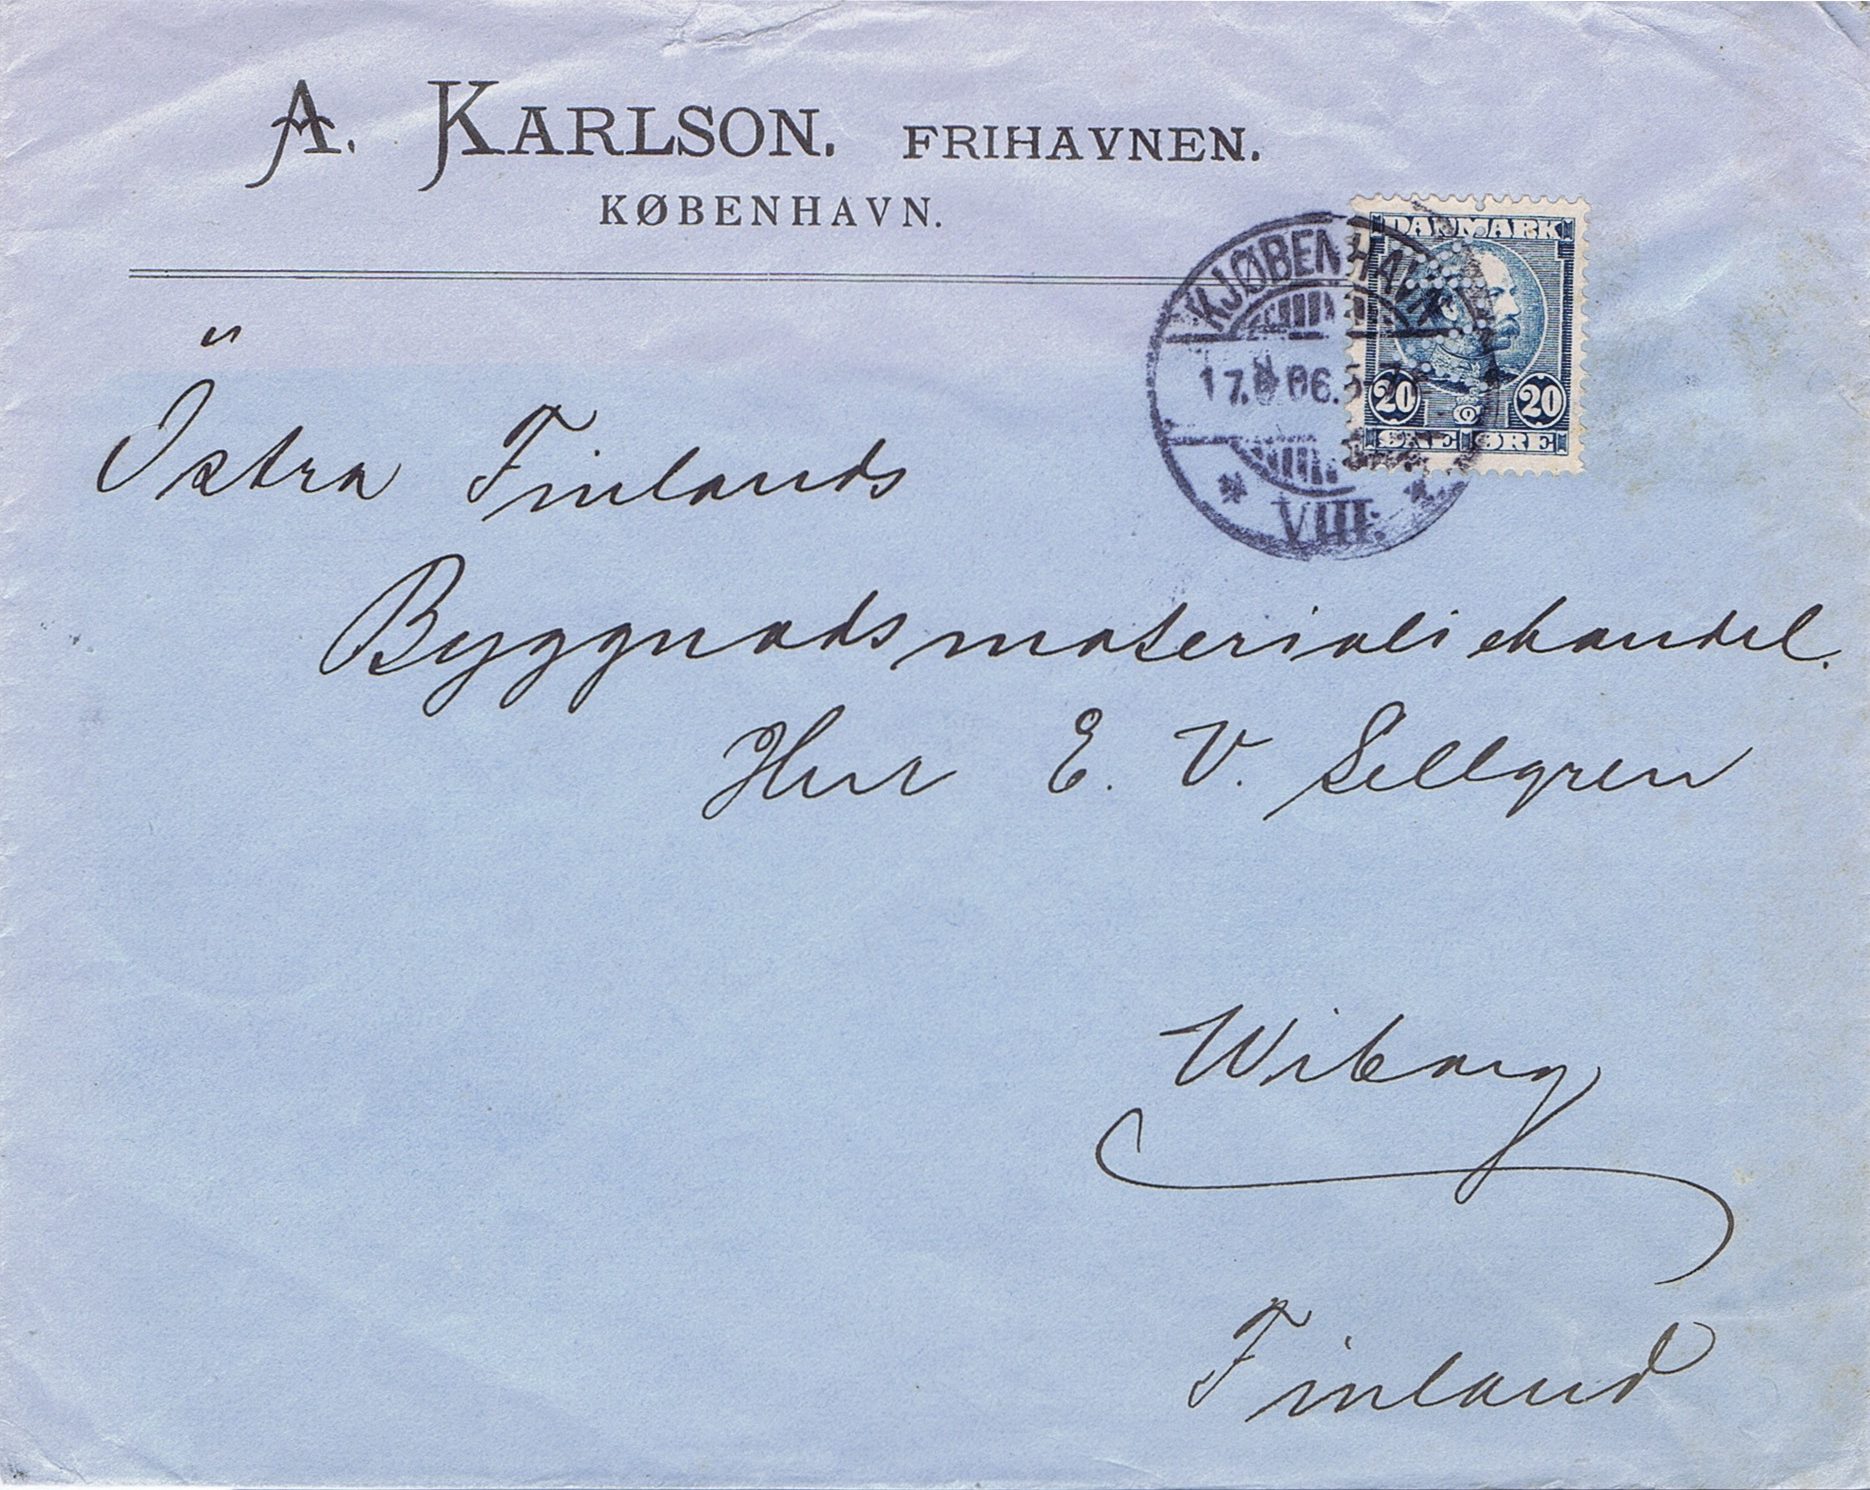 A. KARLSON. FRIHAVNEN.
KØBENHAVN.
DANMARK
KJØBENHAVN
17. 06.5-
20 20
ØRE ØRE
VIII.
Östra Finlands
Byggnadsmaterialiehandel.
Herr E. V. Sellgren
Wiborg
Finland